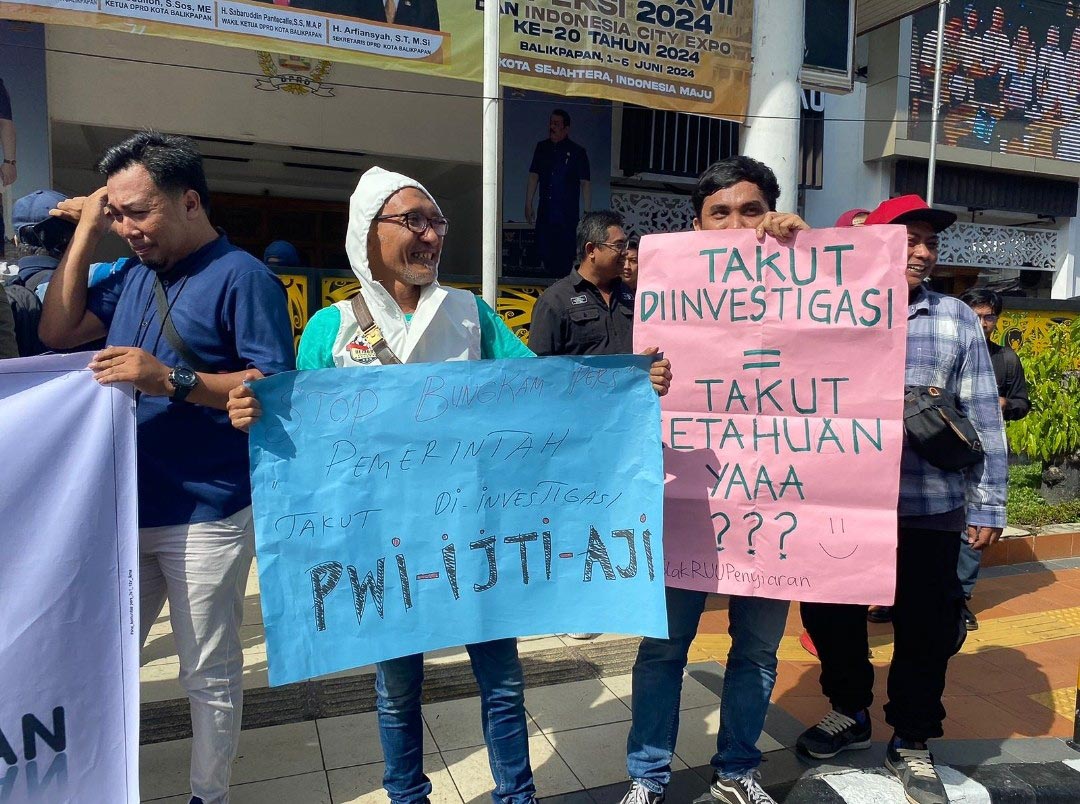 KETUA DPRD KOTA BALIKPAPAN
H. Sabaruddin Pantecallo,S.S, M.A.P
WAKIL KETUA DPRD KOTA BALIKPAPAN
H. Arfiansyah, S.T, M.Si
SEKRETARIS DPRD KOTA BALIKPAPAN
2024
DAN INDONESIA CITY EXPO
KE-20 TAHUN 2024
BALIKPAPAN, 1-6 JUNI 2024
KOTA SEJAHTERA, INDONESIA MAJU
STOP BUNGKAM PERS
PEMERINTAH
" TAKUT DI-INVESTIGASI
PWI-IJTI-AJI
TAKUT
DIINVESTIGASI
=
TAKUT
KETAHUAN
YAAA
???
lakRUUPenyiaran
AN